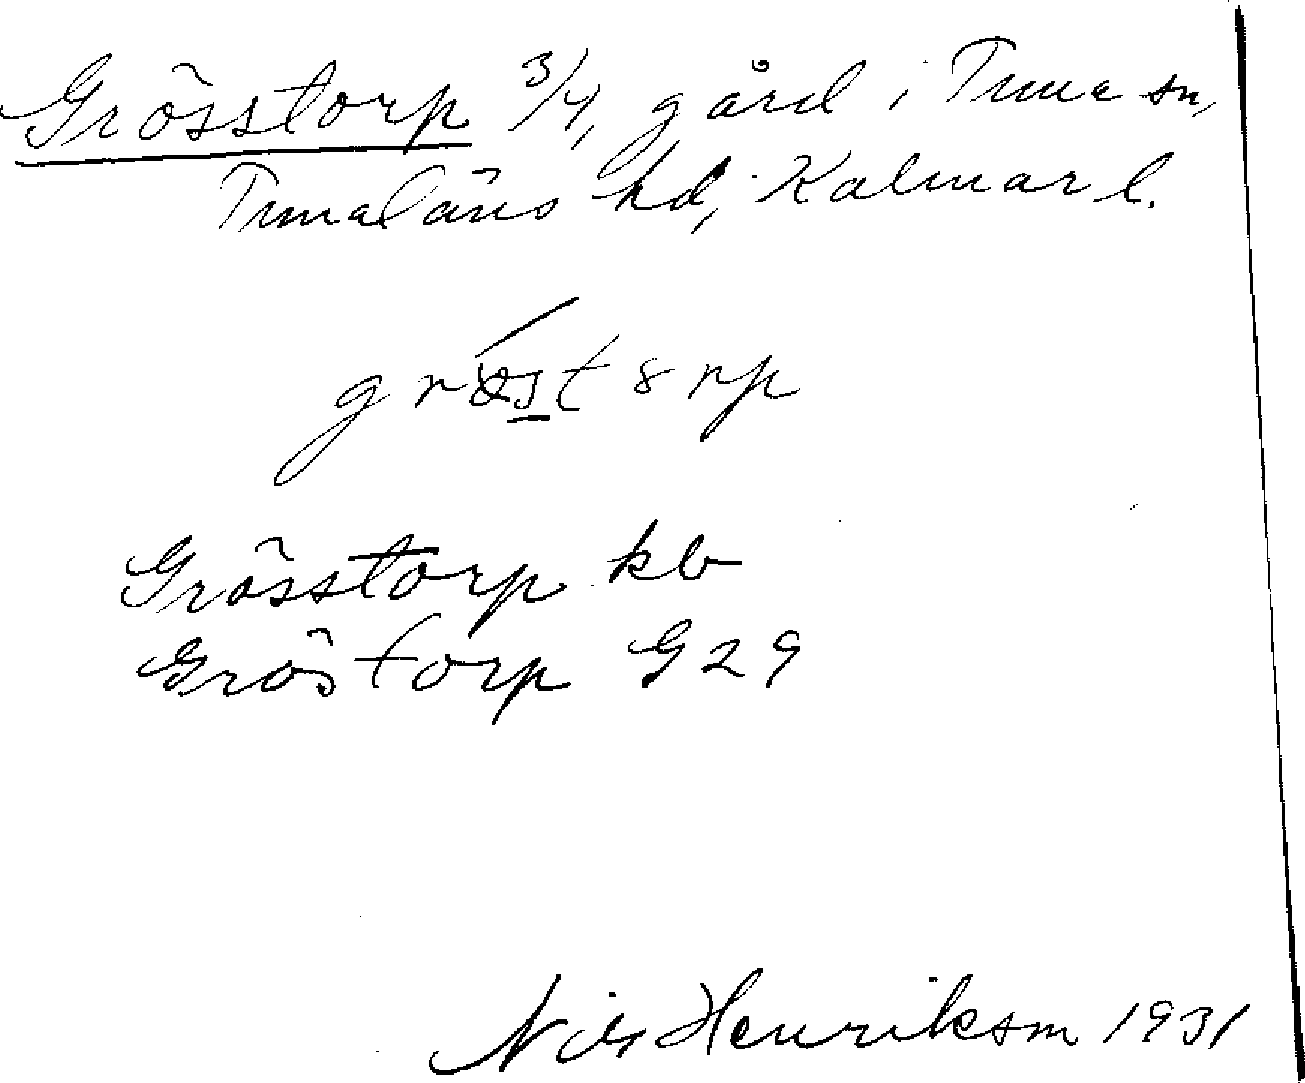 Grösstorp 3/4, gård i Tuna sn,
Tunaläns hd, Kalmar l.
Grösstorp kb
Gröstorp G29
Nils Henriksson 1931